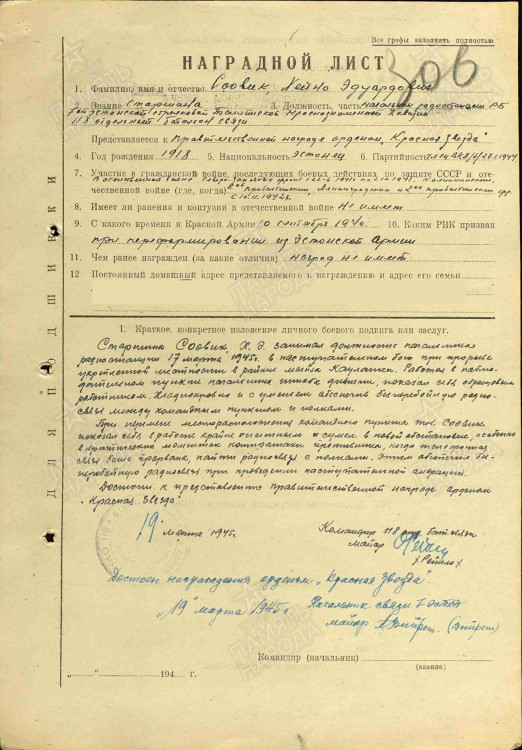 Все графы заполнять полностью
306
НАГРАДНОЙ ЛИСТ
1. Фамилия, имя и отчество Соовик, Хейно Эдуардович
2. Звание Старшина 3. Должность, часть начальник радиостанции РБ
7ой Эстонской стрелковой Таллинской Краснознаменной дивизии
118 отдельный батальон связи
Представляется к правительственной награде орденом "Красная Звезда"
4. Год рождения 1918 5. Национальность эстонец 6. Партийность
7. Участие в гражданской войне, последующих боевых действиях по защите СССР и оте-
чественной войне (где, когда)
2ой прибалтийский, Ленинградский и 2ой прибалтийский фр.
8. Имеет ли ранения и контузии в отечественной войне Не имеет
9. С какого времени в Красной Армии 10 сентября 1940 10. Каким РВК призван
при переформировании из Эстонской Армии
11. Чем ранее награжден (за какие отличия) наград не имеет
12 Постоянный домашный адрес представляемого к награждению и адрес его семьи
ДЛЯ ПОДШИВКИ
1. Краткое, конкретное изложение личного боевого подвига или заслуг.
Старшина Соовик, Х.Э. занимая должность начальника
радиостанции 17 марта 1945г. в наступательном бою при прорыве
укрепленной местности в районе мызы Каулаци. Работая в наблю-
дательном пункте начальника штаба дивизии, показал себя образцовым
работником. Хладнокровно и с умением обеспечил бесперебойную радио-
связь между командным пунктом и полками.
При перемене месторасположения командного пункта тов. Соовик
показал себя в работе крайне опытным и сумел в новой обстановке, особенно
в критические моменты контратаки противника, когда телефонная
связь была прервана, найти радиосвязь с полками. Этим обеспечил бес-
перебойную радиосвязь при проведении наступательной операции.
Достоин к представлению правительственной награде орденом
"Красная Звезда".
19 марта 1945г.
Командир 118 отд. бат. связи
майор
Достоин награждения орденом "Красная Звезда".
"19" марта 1945г. Начальник связи 7 эстсд
майор
Командир (начальник)
(звание)
" " 194 г.
ПАМЯТЬ НАРОДА